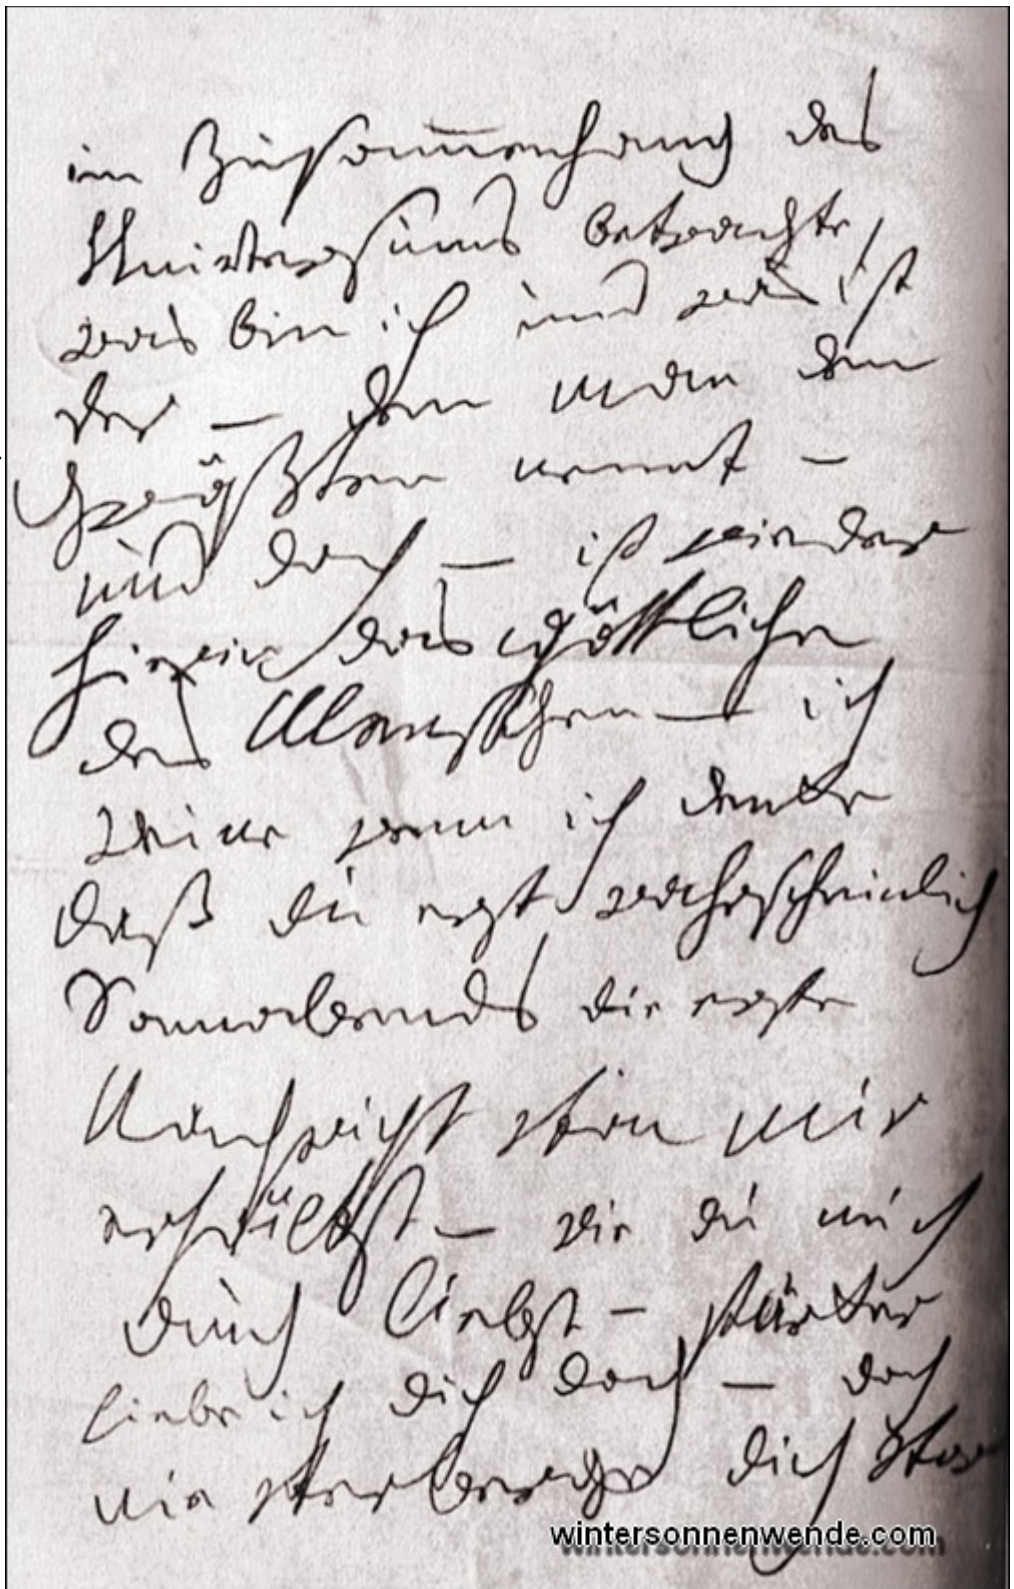 im Zusam̅enhang des
Universums betrachte,
was bin ich und was ist
der — den man den
Größten nennt —
und doch — ist wieder
hierin das Göttliche
des Menschen — ich
weine wenn ich denke
daß du erst wahrscheinlich
Sonnabends die erste
Nachricht von mir
erhältst — wie du mich
auch liebst — stärker
liebe ich dich doch — doch
nie verberge dich vor
wintersonnenwende.com